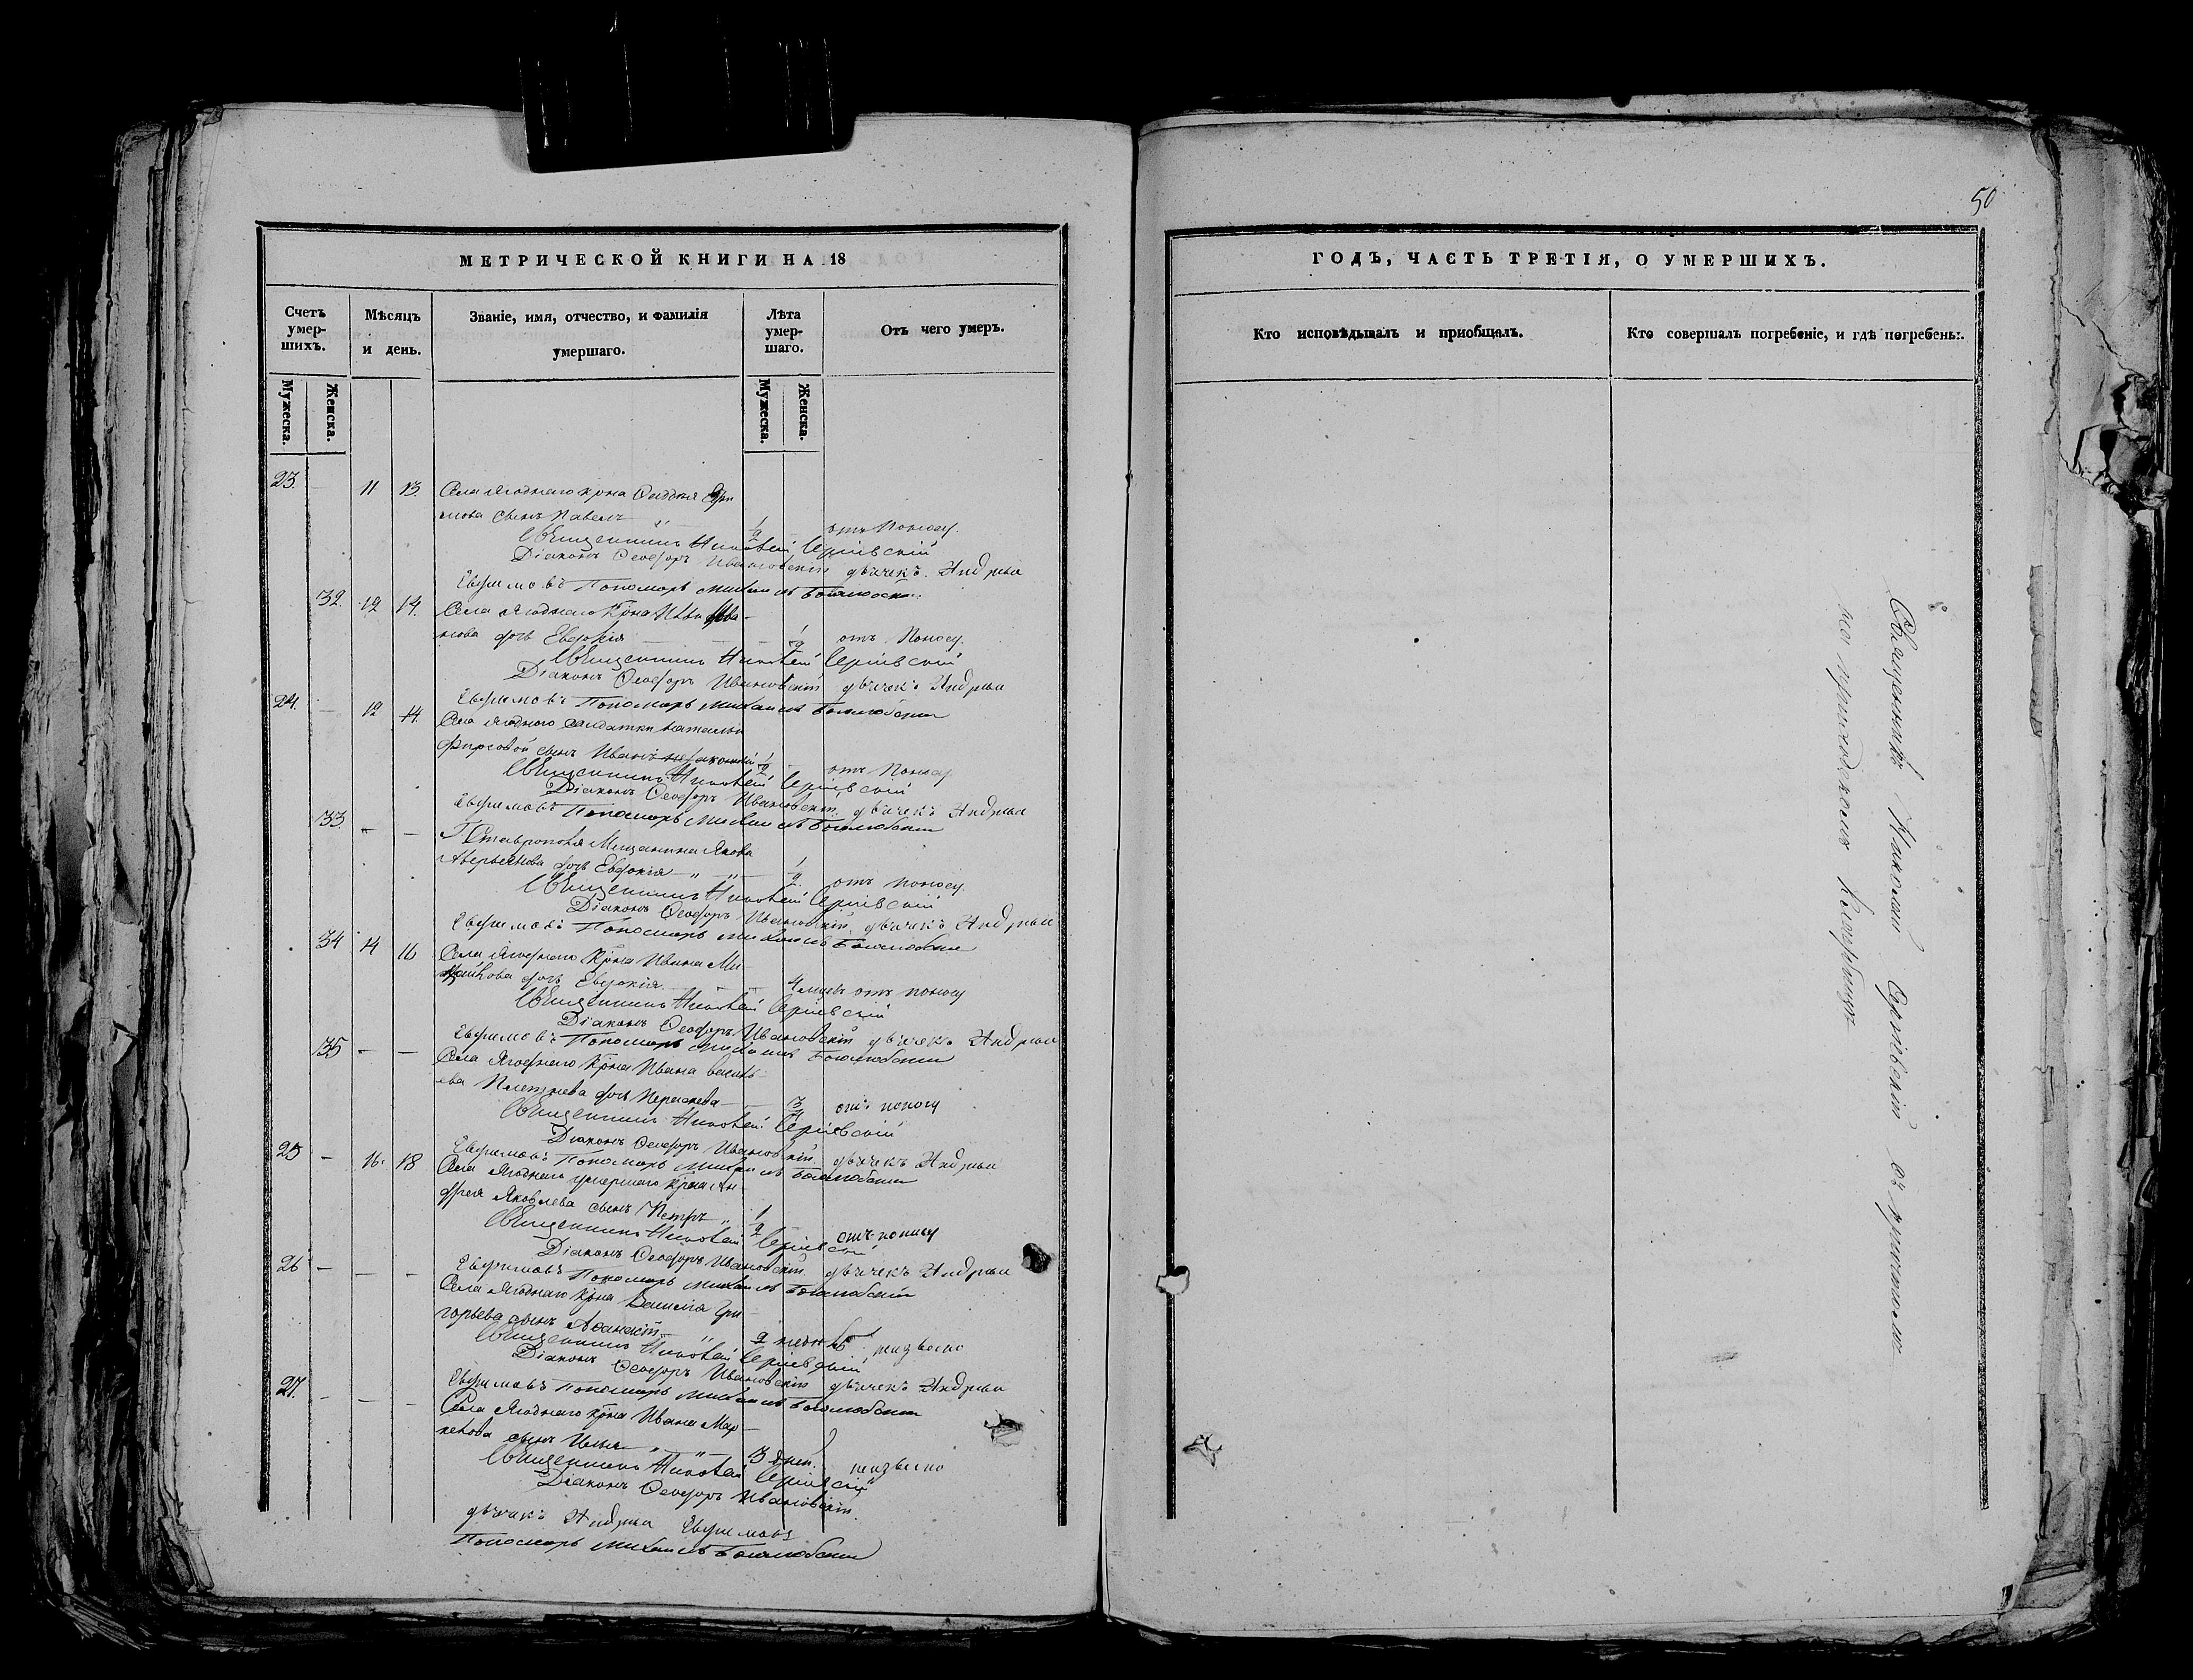 50
МЕТРИЧЕСКОЙ КНИГИ НА 18
Счетъ умер-шихъ.
Мѣсяцъ и день.
Званіе, имя, отчество, и фамилія умершаго.
Лѣта умер-шаго.
Отъ чего умеръ.
Мужеска.
Женска.
Мужеска.
Женска.
23. 11 13. Села Ягоднаго крна
сынъ Павелъ 1/2 отъ поносу.
Священникъ Николай Сергіевскій
Діаконъ Ѳеодоръ Ивановскій дьячекъ Андрей
Евфимовъ Пономарь Михаилъ Боголюбскій
32. 12 14. Села Ягоднаго крна
нова дочь Евдокія 1/2 отъ поносу.
Священникъ Николай Сергіевскій
Діаконъ Ѳеодоръ Ивановскій дьячекъ Андрей
Евфимовъ Пономарь Михаилъ Боголюбскій
24. — 12 14. Села Ягоднаго солдатки Натальи
Фирсовой сынъ Иванъ 1/2 отъ поносу
Священникъ Николай Сергіевскій
Діаконъ Ѳеодоръ Ивановскій дьячекъ Андрей
Евфимовъ Пономарь Михаилъ Боголюбскій
33. — — Г. Ставрополя Мещанина Якова
Аверьянова дочь Евдокія 1/2 отъ поносу.
Священникъ Николай Сергіевскій
Діаконъ Ѳеодоръ Ивановскій дьячекъ Андрей
Евфимовъ Пономарь Михаилъ Боголюбскій
34 14 16 Села Ягоднаго крна Ивана Ми-
дочь Евдокія 4 мцевъ отъ поносу
Священникъ Николай Сергіевскій
Діаконъ Ѳеодоръ Ивановскій дьячекъ Андрей
Евфимовъ Пономарь Михаилъ Боголюбскій
35 — — Села Ягоднаго крна Ивана Василь-
ева Плетнева дочь отъ поносу
Священникъ Николай Сергіевскій
Діаконъ Ѳеодоръ Ивановскій дьячекъ Андрей
Евфимовъ Пономарь Михаилъ Боголюбскій
25 — 16. 18 Села Ягоднаго умершаго крна Ан-
дрея Яковлева сынъ Петръ 1/2 отъ поносу
Священникъ Николай Сергіевскій
Діаконъ Ѳеодоръ Ивановскій дьячекъ Андрей
Евфимовъ Пономарь Михаилъ Боголюбскій
26 — — — Села Ягоднаго крна Василія Гри-
горьева сынъ Аѳанасій 2 неизвесно
Священникъ Николай Сергіевскій
Діаконъ Ѳеодоръ Ивановскій дьячекъ Андрей
Евфимовъ Пономарь Михаилъ Боголюбскій
27. — — — Села Ягоднаго крна Ивана Мар-
келова сынъ Илья 3 дней. неизвесно
Священникъ Николай Сергіевскій
Діаконъ Ѳеодоръ Ивановскій.
дьячекъ Андрей Евфимовъ
Пономарь Михаилъ Боголюбскій
ГОДЪ, ЧАСТЬ ТРЕТІЯ, О УМЕРШИХЪ.
Кто исповѣдывалъ и приобщалъ.
Кто совершалъ погребеніе, и гдѣ погребены.
Священникъ Николай Сергіевскій съ причтомъ
на приходскомъ кладбищѣ